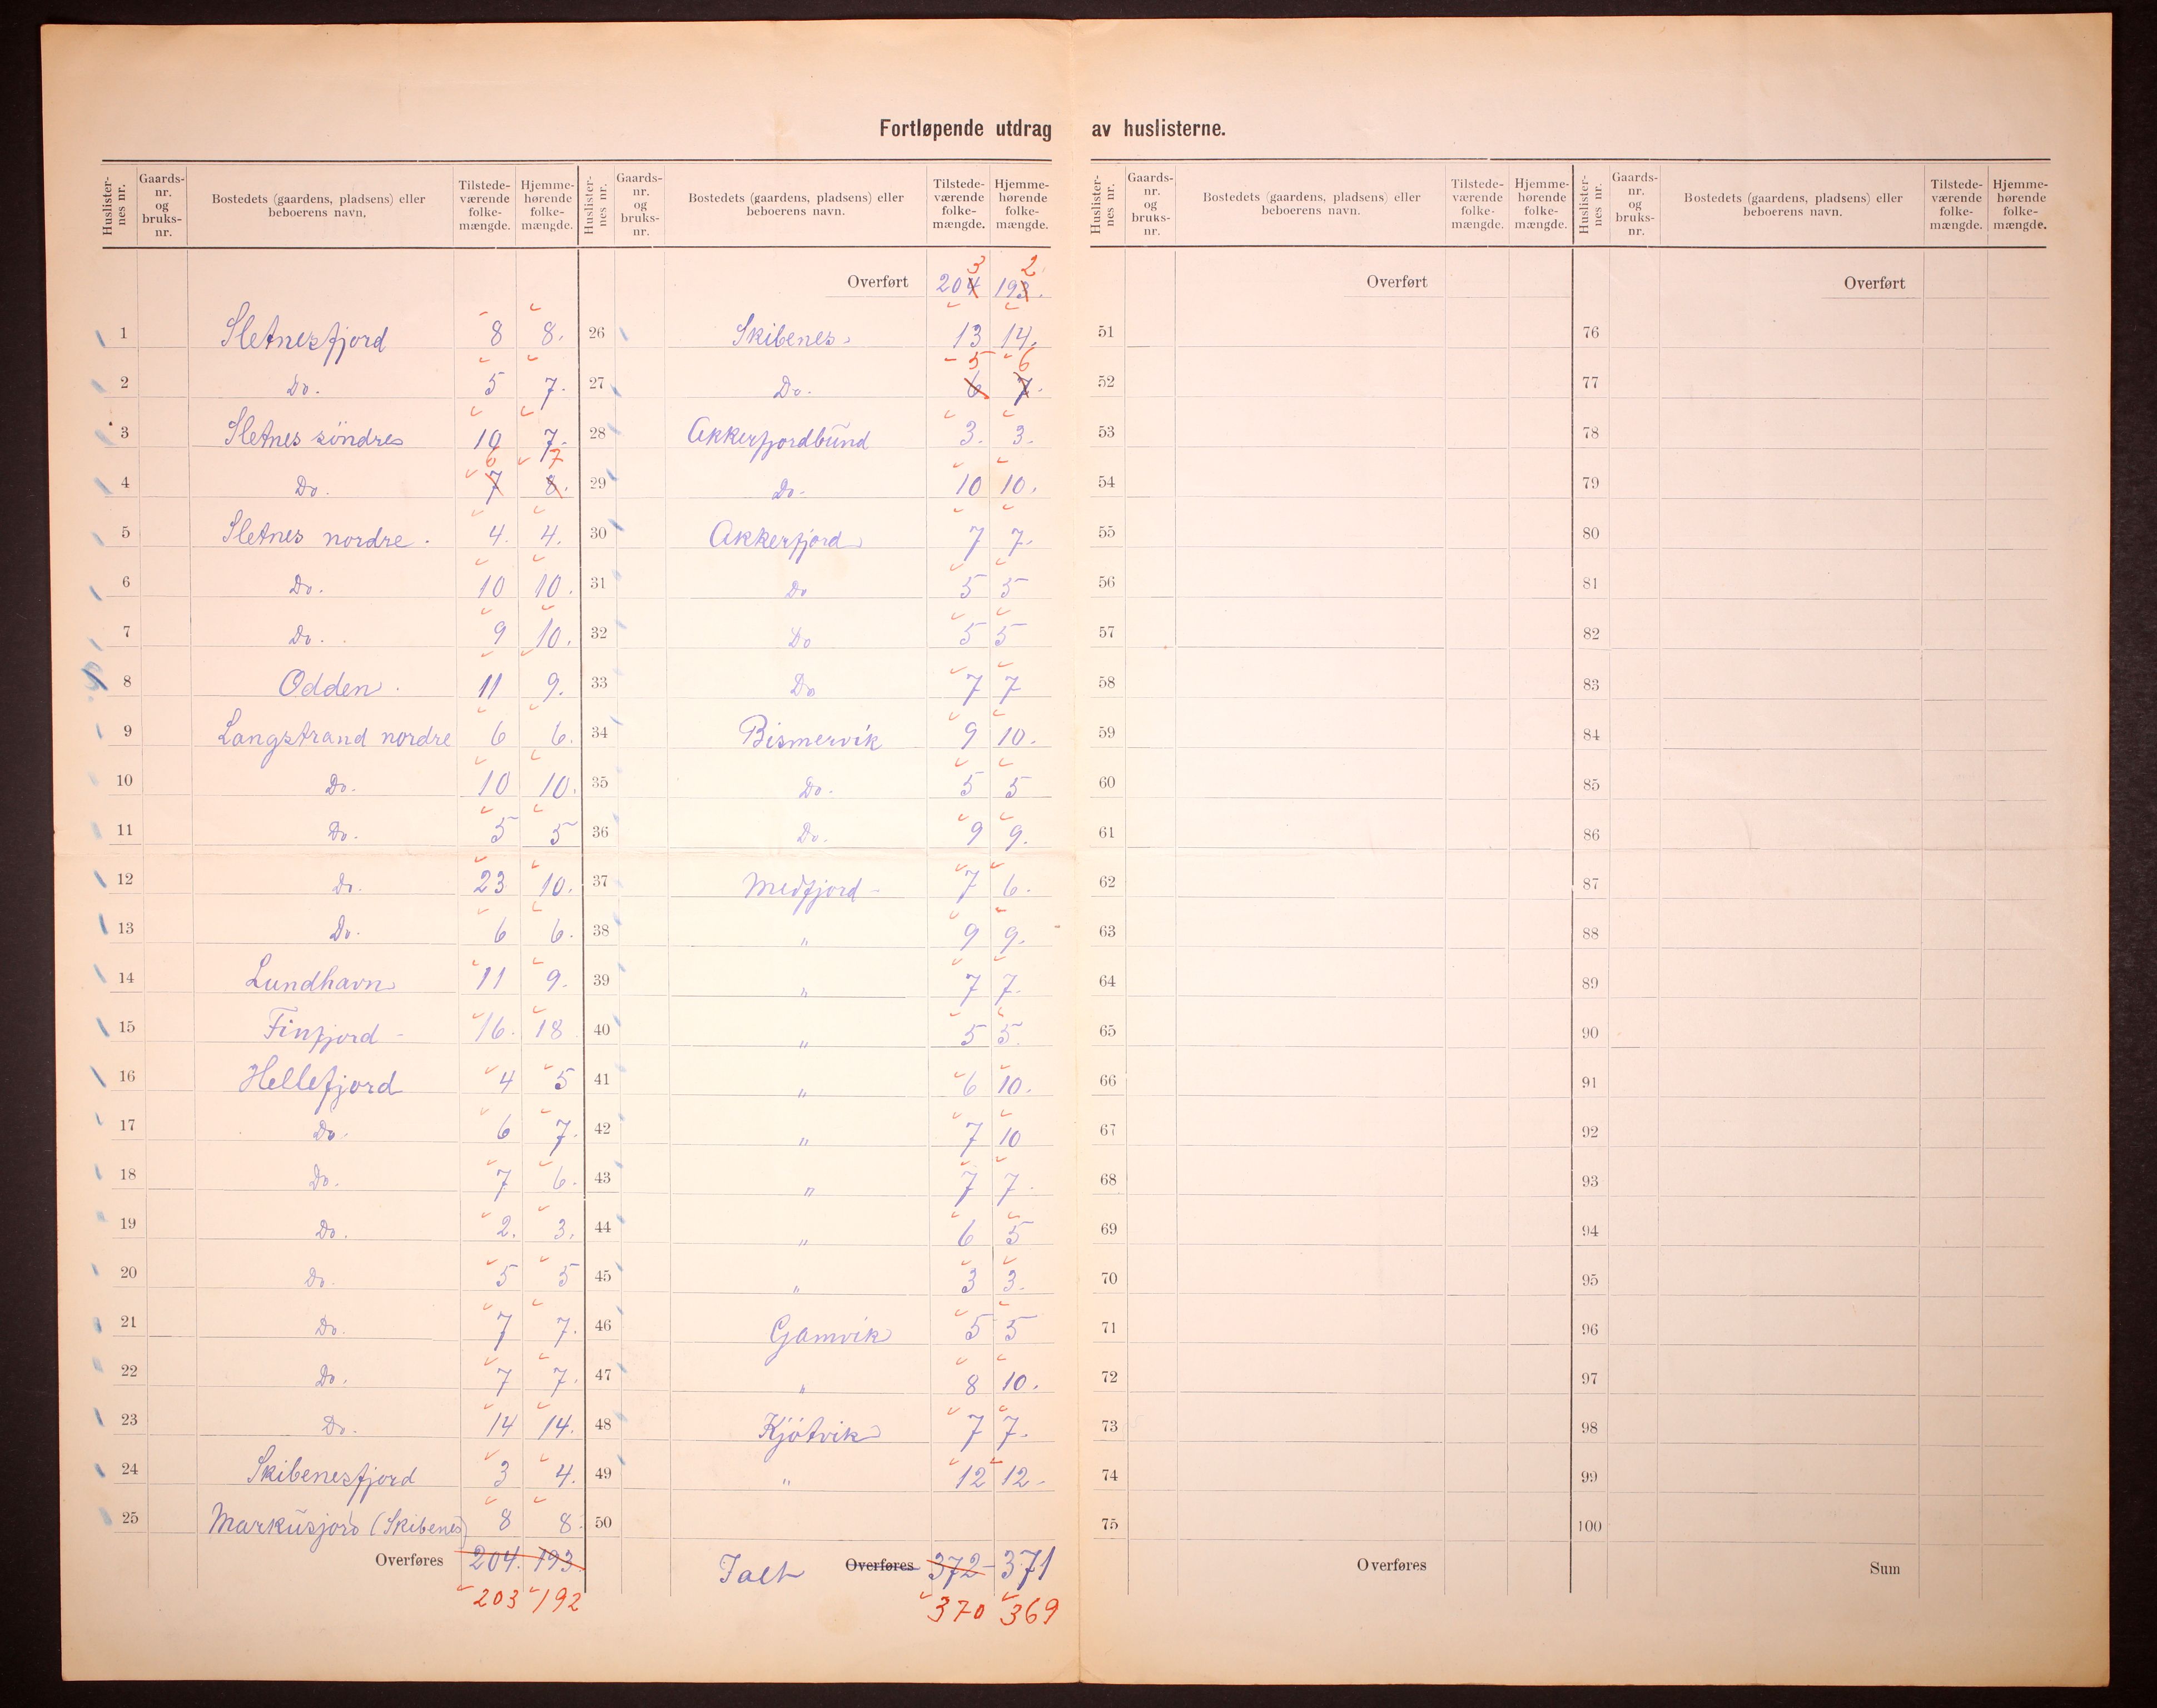 Fortløpende utdrag av huslisterne.
Huslisternes nr. Gaardsnr. og bruksnr. Bostedets (gaardens, pladsens) eller beboerens navn. Tilstedeværende folkemængde. Hjemmehørende folkemængde.
1 Sletnesfjord 8 8.
2 Do. 5 7.
3 Sletnes söndre 10 7.
4 Do. 7 8. 6 7
5 Sletnes nordre. 4. 4.
6 Do. 10 10.
7 Do. 9 10.
8 Odden. 11 9.
9 Langstrand nordre 6 6.
10 Do. 10 10.
11 Do. 5 5
12 Do. 23 10.
13 Do. 6 6.
14 Lundhavn 11 9.
15 Finfjord - 16. 18
16 Hellefjord 4 5
17 Do. 6 7.
18 Do. 7 6.
19 Do. 2. 3.
20 Do. 5 5
21 Do. 7 7.
22 Do. 7 7.
23 Do. 14 14.
24 Skibenesfjord 3 4.
25 Markusjord (Skibenes) 8 8.
Overføres 204. 193
203 192
Huslisternes nr. Gaardsnr. og bruksnr. Bostedets (gaardens, pladsens) eller beboerens navn. Tilstedeværende folkemængde. Hjemmehørende folkemængde.
3 2
Overført 204 193.
26 Skibenes. 13 14.
27 Do. 6 7. 5 6
28 Akkerfjordbund 3. 3.
29 Do. 10 10.
30 Akkerfjord 7 7.
31 Do 5 5
32 Do 5 5
33 Do 7 7
34 Bismervik 9 10.
35 Do. 5 5
36 Do. 9 9.
37 Medfjord - 7 6.
38 " 9 9.
39 " 7 7.
40 " 5 5.
41 " 6 10.
42 " 7 10
43 " 7 7.
44 " 6 5
45 " 3 3.
46 Gamvik 5 5
47 " 8 10.
48 Kjötvik 7 7.
49 " 12 12-
50
Ialt Overføres 372 - 371
370 369
Huslisternes nr. Gaardsnr. og bruksnr. Bostedets (gaardens, pladsens) eller beboerens navn. Tilstedeværende folkemængde. Hjemmehørende folkemængde.
Overført
51
52
53
54
55
56
57
58
59
60
61
62
63
64
65
66
67
68
69
70
71
72
73
74
75
Overføres
Huslisternes nr. Gaardsnr. og bruksnr. Bostedets (gaardens, pladsens) eller beboerens navn. Tilstedeværende folkemængde. Hjemmehørende folkemængde.
Overført
76
77
78
79
80
81
82
83
84
85
86
87
88
89
90
91
92
93
94
95
96
97
98
99
100
Sum